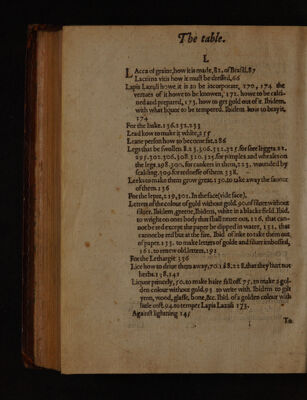 The table.
L
LAcca of graine, how it is made, 82. of Brasil, 87
Lacrima vitis how it must be dressed, 66
Lapis Lazuli howe it is to be incorporate, 170, 174 the
vertues of it howe to be knowen, 172. howe to be calci-
ned and prepared, 173. how to get gold out of it. Ibidem.
with what liquor to be tempered. Ibidem. how to bray it,
174
For the laske. 136. 232. 233
Lead how to make it white, 215
Leane person how to become fat, 286
Legs that be swollen 8. 23. 306. 321. 325. for sore legges 22.
295. 302. 306. 308. 310. 325. for pimples and wheales on
the legs. 298. 300. for cankers in them, 223. wounded by
scalding. 309. for rednesse of them 338.
Leekes to make them grow great. 130. to take away the savour
of them. 136
For the lepre, 239, 301. In the face (vide face).
Letters of the colour of gold without gold. 90. of silver without
silver. Ibidem, greene, Ibidem, white in a blacke field. Ibid.
to wright on ones body that shall never out, 126, that can-
not be red except the paper be dipped in water, 131. that
cannot be red but at the fire. Ibid. of inke to take them out
of paper. 133. to make letters of golde and silver imbossed,
161. to renew old letters, 192
For the Lethargie 236
Lice how to drive them away, 70. 188. 218. that they hurt not
herbs. 138. 141
Liquor princely, 50. to make haire fall off 75, to make a gol-
den colour without gold. 93 to write with Ibidem to gilt
yron, wood, glasse, bone, &c. Ibid. of a golden colour with
little cost. 94 to temper Lapis Lazuli 173.
Against lightning 145
i
To